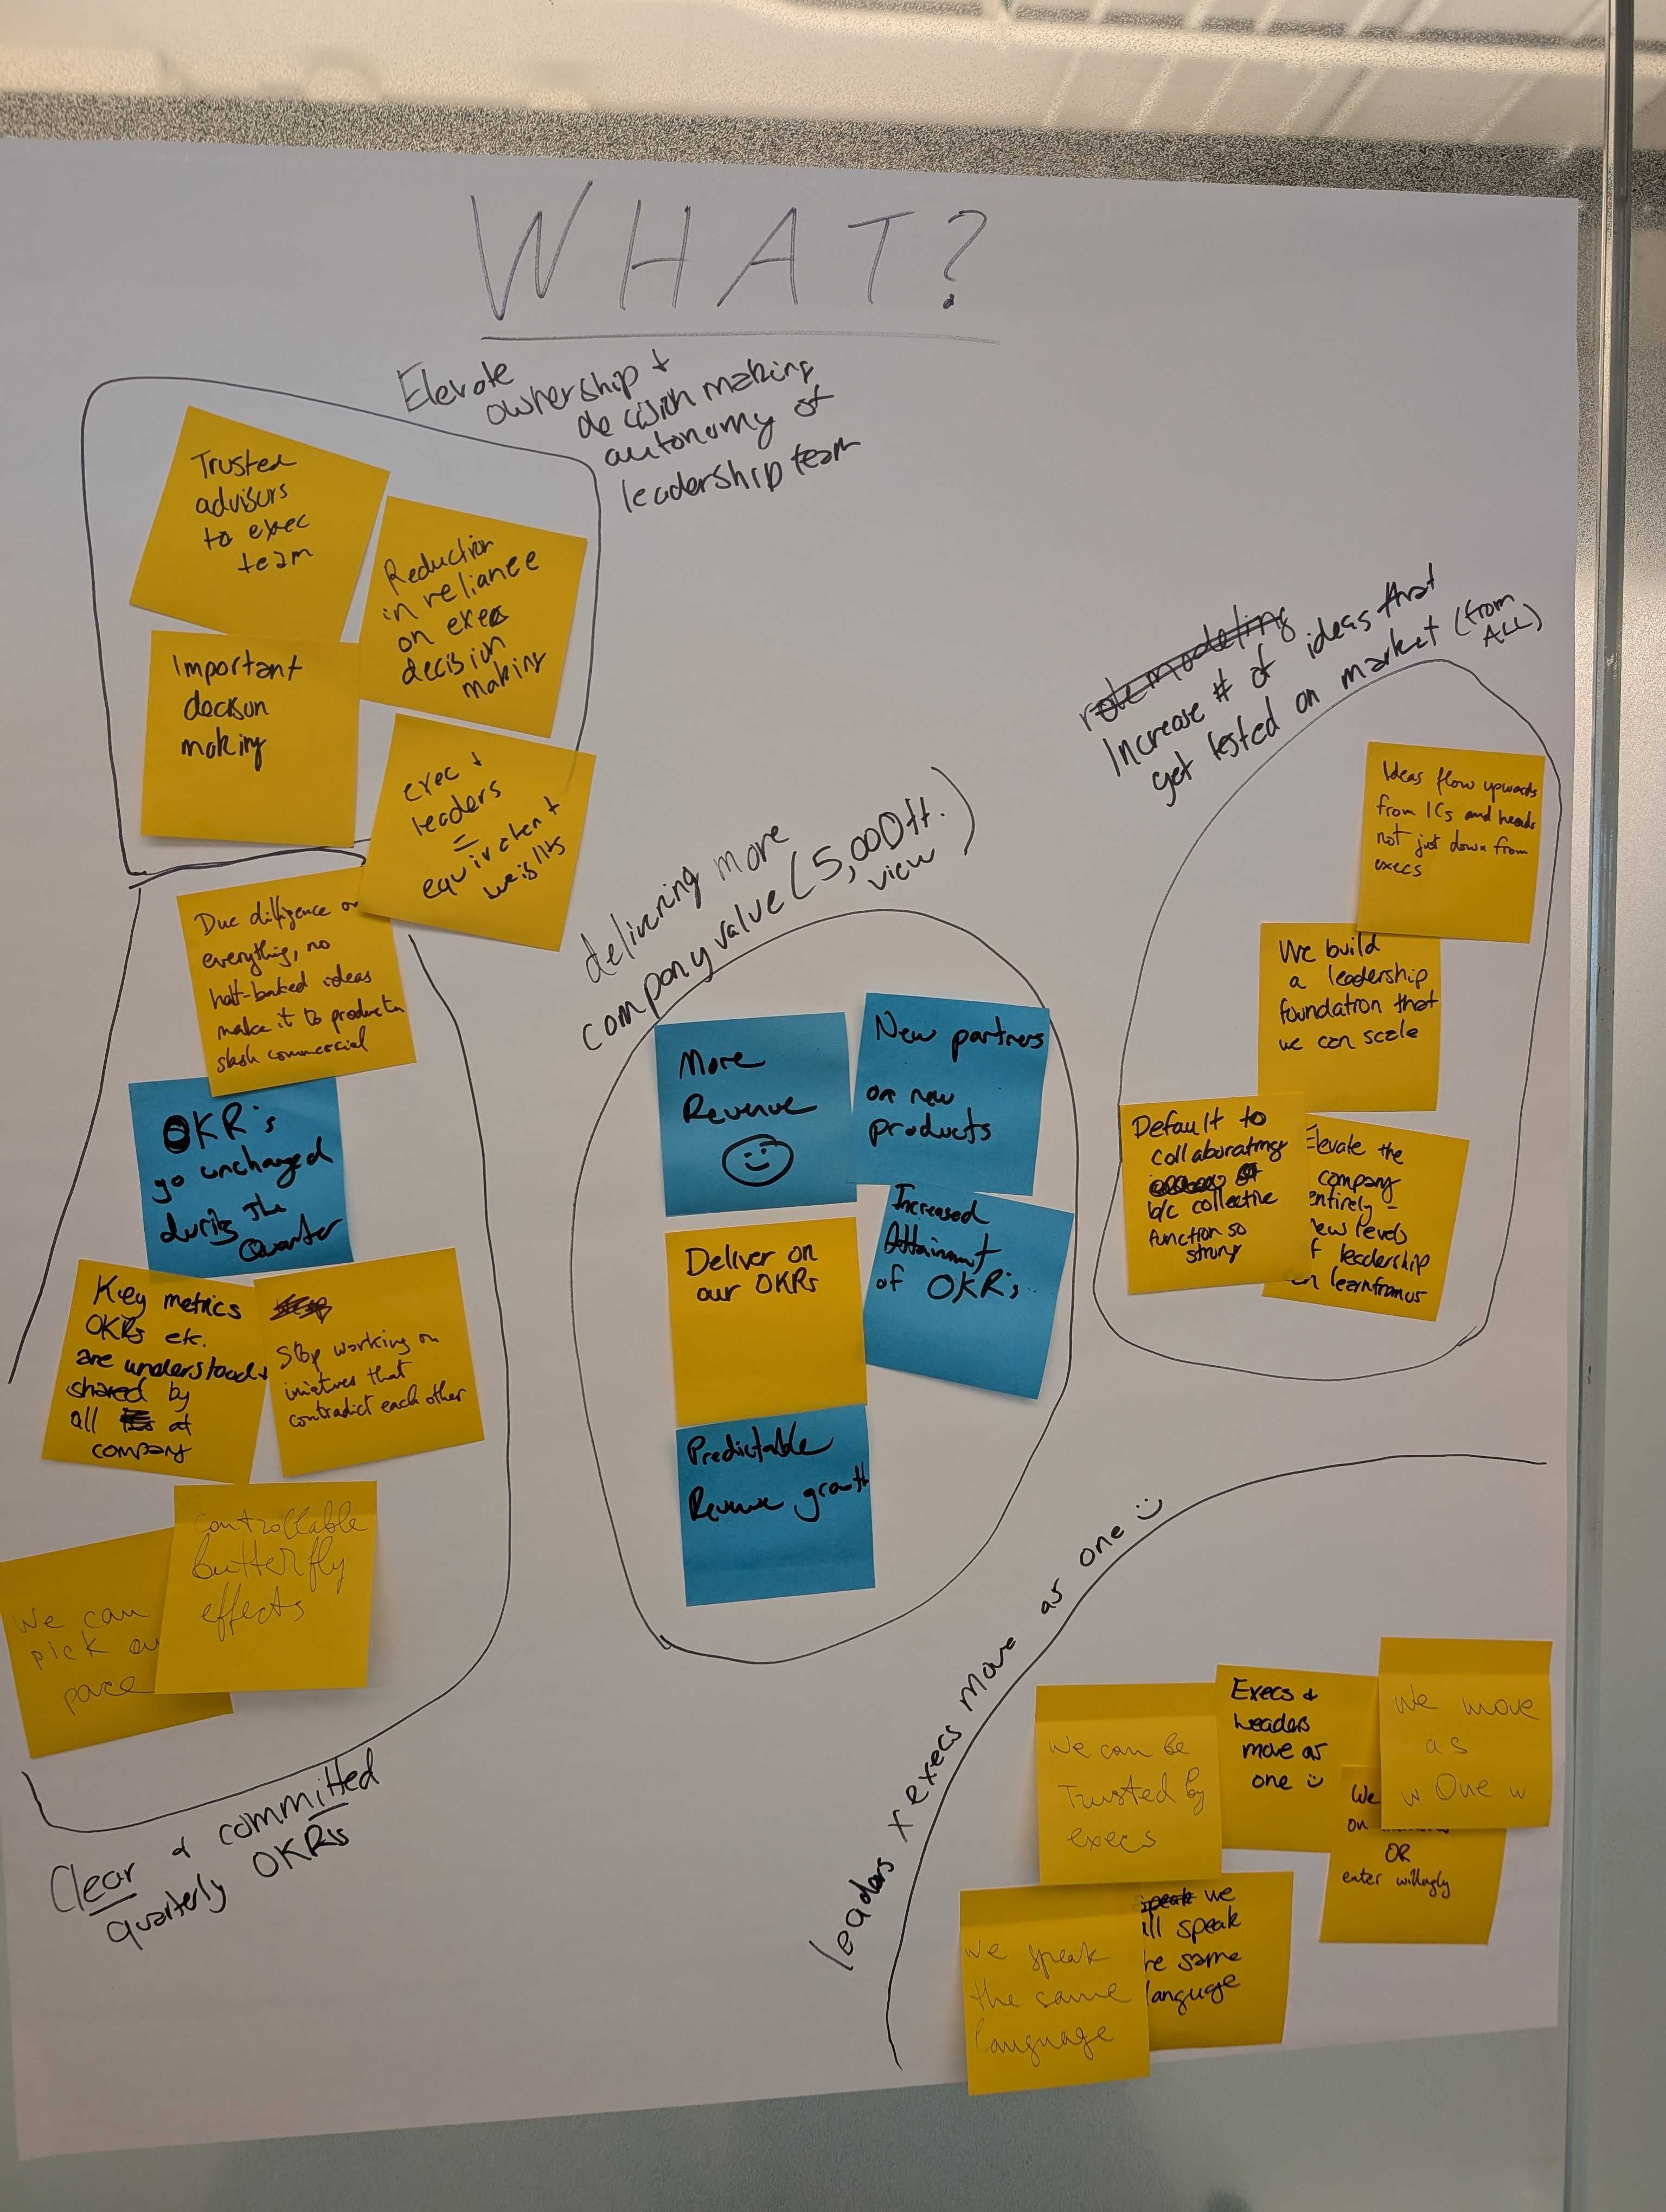 WHAT?
Elevate
ownership +
decision making
autonomy of
leadership team
Trusted
advisors
to exec
team
Reduction
in reliance
on exec
decision
making
Important
decison
making
exec +
leaders
=
equivalent
weights
Due dilligence on
everything, no
half-baked ideas
make it to production
slash commercial
OKR's
go unchanged
during the
Quarter
Key metrics
OKRs etc.
are understood +
shared by
all at
company
Stop working on
iniatives that
contradict each other
controllable
butterfly
effects
We can
pick ou
pace
Clear + committed
quarterly OKRs
delivering more
company value (5,000ft.
view)
More
Revenue
New partners
on new
products
Deliver on
our OKRs
Increased
Attainment
of OKRs
Predictable
Revenue growth
role modeling
Increase # of ideas that
get tested on market (from
ALL)
Ideas flow upwards
from ICs and heads
not just down from
execs
We build
a leadership
foundation that
we can scale
Default to
collaborating
b/c collective
function so
strong
Elevate the
company
entirely -
new levels
f leadership
n learn from us
leaders x execs move as one :)
We can be
Trusted by
execs
Execs +
leaders
move as
one :)
We move
as
" One "
We
on
OR
enter willingly
We speak
the same
language
speak we
all speak
he same
language